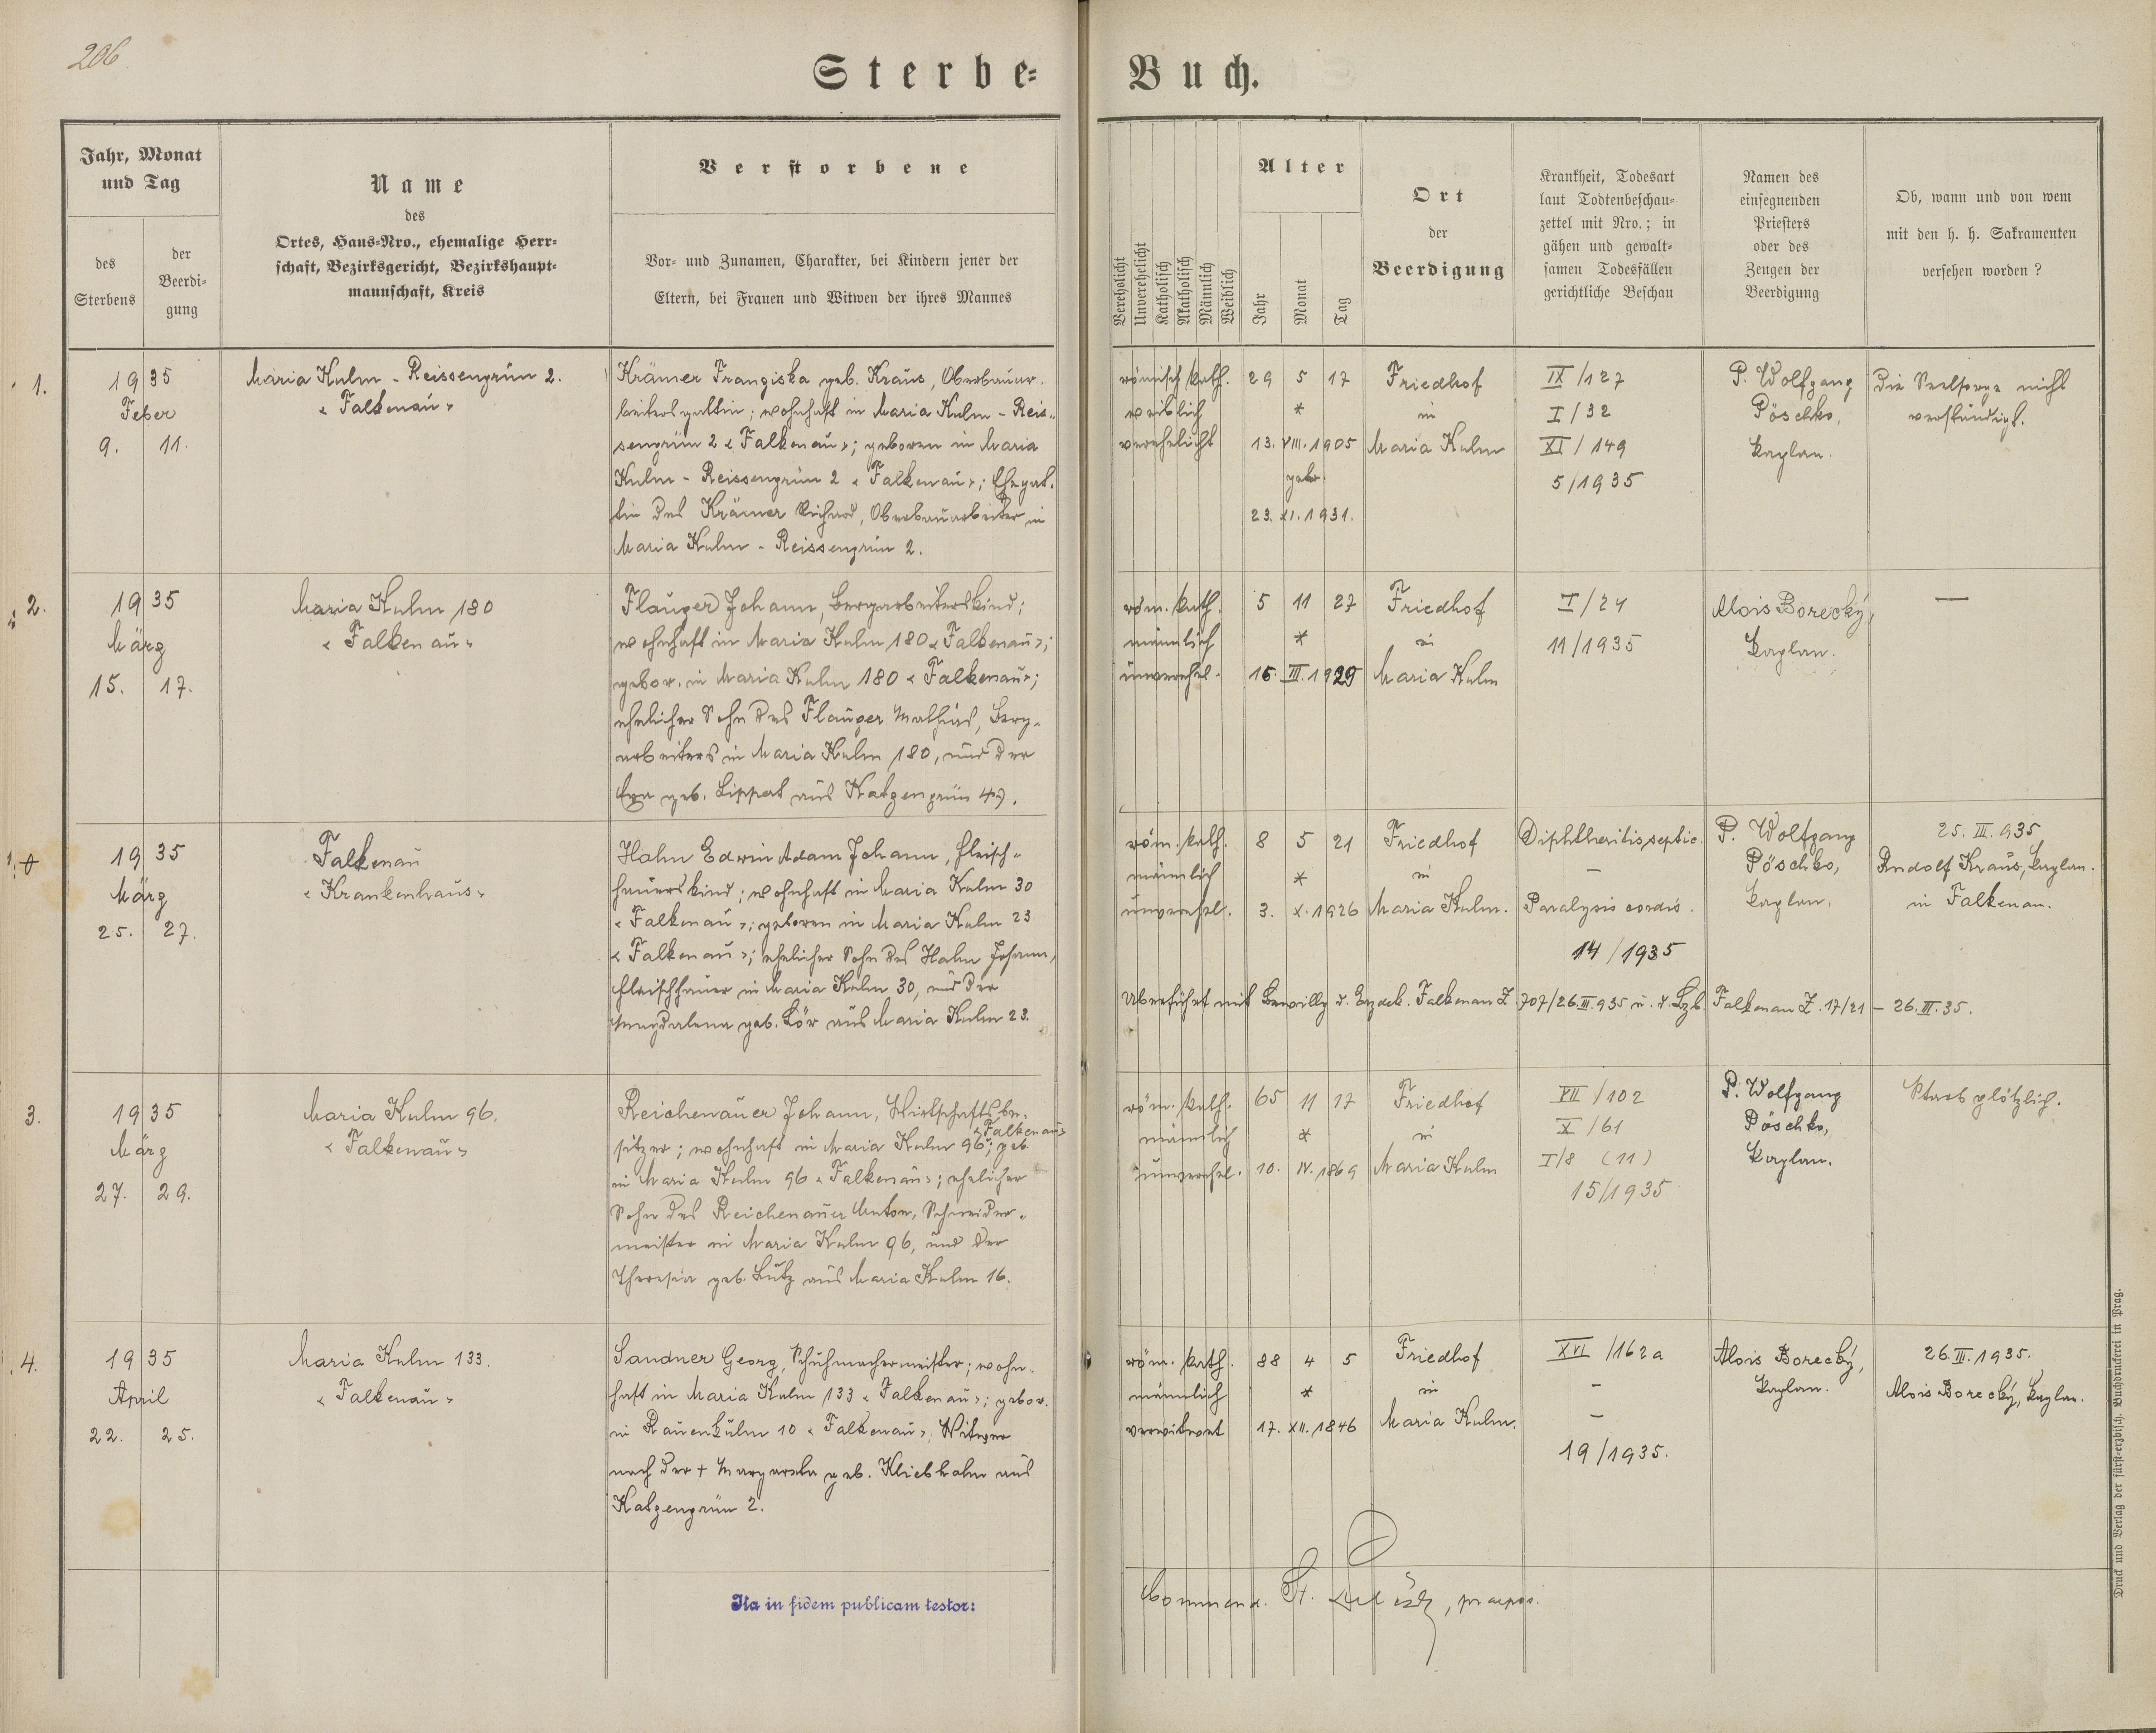 206.
Sterbe-Buch.
Jahr, Monat
und Tag
des
Sterbens
der
Beerdi-
gung
Name
des
Ortes, Haus-Nro., ehemalige Herr-
schaft, Bezirksgericht, Bezirkshaupt-
mannschaft, Kreis
Verstorbene
Vor- und Zunamen, Charakter, bei Kindern jener der
Eltern, bei Frauen und Witwen der ihres Mannes
Verehelicht
Unverehelicht
Katholisch
Akatholisch
Männlich
Weiblich
Alter
Jahr
Monat
Tag
Ort
der
Beerdigung
Krankheit, Todesart
laut Todtenbeschau-
zettel mit Nro.; in
gähen und gewalt-
samen Todesfällen
gerichtliche Beschau
Namen des
einsegnenden
Priesters
oder des
Zeugen der
Beerdigung
Ob, wann und von wem
mit den h. h. Sakramenten
versehen worden?
1.
1935
Feber
9. 11.
Maria Kulm - Reissengrün 2.
"Falkenau"
Krämer Franziska geb. Kraus, Oberbauar-
beitersgattin; wohnhaft in Maria Kulm - Reis-
sengrün 2 "Falkenau"; geboren in Maria
Kulm - Reissengrün 2 "Falkenau"; Ehegat-
tin des Krämer Richard, Oberbauarbeiter in
Maria Kulm - Reissengrün 2.
römisch kath.
weiblich
verehelicht
29 5 17
*
13. VIII. 1905
getr.
23. XI. 1931.
Friedhof
in
Maria Kulm
IX/127
I/32
XI/149
5/1935
P. Wolfgang
Pöschko,
Kaplan.
Die Seelsorge nicht
verständigt.
2.
1935
März
15. 17.
Maria Kulm 180
"Falkenau"
Flauger Johann, Bergarbeiterskind;
wohnhaft in Maria Kulm 180 "Falkenau";
gebor. in Maria Kulm 180 "Falkenau";
ehelicher Sohn des Flauger Mathias, Berg-
arbeiters in Maria Kulm 180, und der
Eva geb. Lippert aus Katzengrün 49.
röm. kath.
männlich
unverehel.
5 11 27
*
16. III. 1929
Friedhof
in
Maria Kulm
I/24
11/1935
Alois Borecký,
Kaplan.
—
1935
März
25. 27.
Falkenau
"Krankenhaus"
Hahn Edwin Adam Johann, Fleisch-
hauerskind; wohnhaft in Maria Kulm 30
"Falkenau"; geboren in Maria Kulm 23
"Falkenau"; ehelicher Sohn des Hahn Johann,
Fleischhauer in Maria Kulm 30, und der
Magdalena geb. Löw aus Maria Kulm 23.
röm. kath.
männlich
unverehel.
8 5 21
*
3. X. 1926
Friedhof
in
Maria Kulm.
Diphtheritis septic.
—
Paralysis cordis.
14/1935
P. Wolfgang
Pöschko,
Kaplan.
25. III. 935
Rudolf Kraus, Kaplan.
in Falkenau.
Überführt mit Bewillg d. Erzdek. Falkenau Z. 707/26. III. 935 u. d. Bzb. Falkenau Z. 17/21 – 26. III. 35.
3.
1935
März
27. 29.
Maria Kulm 96.
"Falkenau"
Reichenauer Johann, Wirtschaftsbe-
sitzer; wohnhaft in Maria Kulm 96 "Falkenau"; geb.
in Maria Kulm 96 "Falkenau"; ehelicher
Sohn des Reichenauer Anton, Schneider-
meister in Maria Kulm 96, und der
Theresia geb. Lutz aus Maria Kulm 16.
röm. kath.
männlich
unverehel.
65 11 17
*
10. IV. 1869
Friedhof
in
Maria Kulm
VII/102
X/61
I/8 (11)
15/1935
P. Wolfgang
Pöschko,
Kaplan.
Starb plötzlich.
4.
1935
April
22. 25.
Maria Kulm 133.
"Falkenau"
Sandner Georg, Schuhmachermeister; wohn-
haft in Maria Kulm 133 "Falkenau"; gebor.
in Rauenkulm 10 "Falkenau"; Witwer
nach der + Margareta geb. Kliebhahn aus
Katzengrün 2.
röm. kath.
männlich
verwitwet
88 4 5
*
17. XII. 1846
Friedhof
in
Maria Kulm.
XVI/162a
–
–
19/1935.
Alois Borecký,
Kaplan.
26. III. 1935.
Alois Borecký, Kaplan.
Ita in fidem publicam testor:
Commend. , praepos.
Druck und Verlag der fürst-erzbisch. Buchdruckerei in Prag.